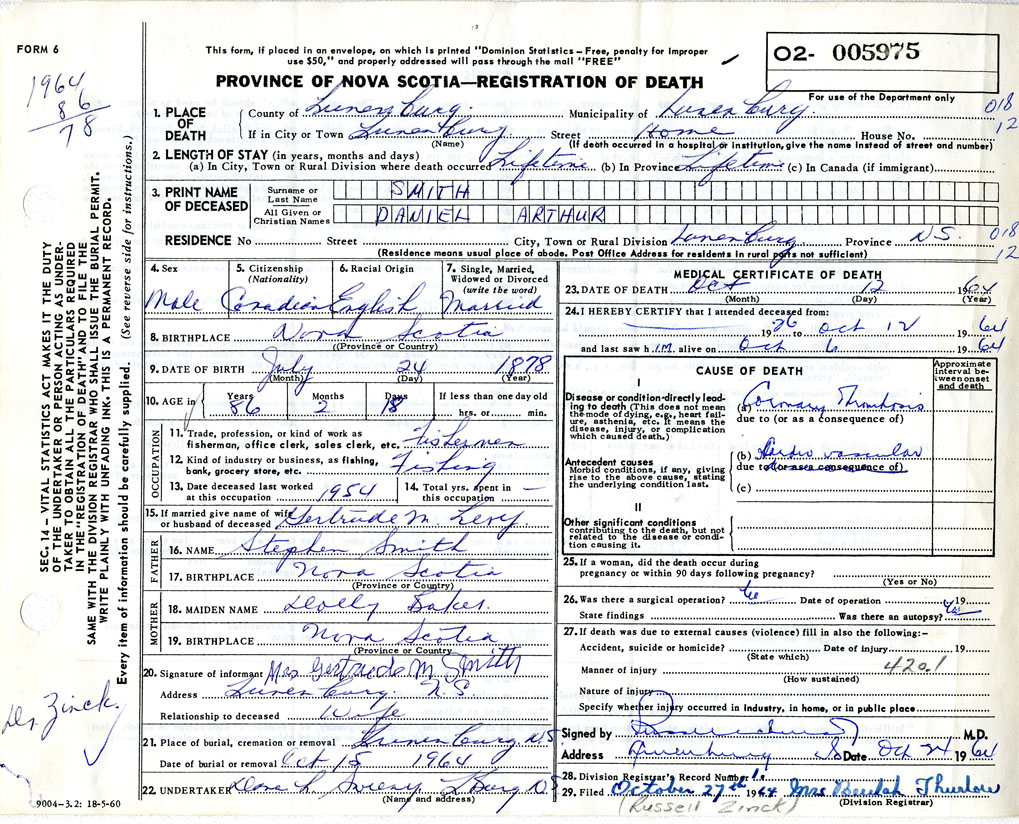 FORM 6
This form, if placed in an envelope, on which is printed "Dominion Statistics – Free, penalty for improper
use $50," and properly addressed will pass through the mail "FREE"
O2- 005975
For use of the Department only
PROVINCE OF NOVA SCOTIA—REGISTRATION OF DEATH
1964
86
78
1. PLACE OF DEATH
County of Lunenburg. Municipality of Lunenburg. 018
If in City or Town Lunenburg Street Home House No. 12
(Name) (If death occurred in a hospital or institution, give the name instead of street and number)
2. LENGTH OF STAY (in years, months and days)
(a) In City, Town or Rural Division where death occurred Lifetime (b) In Province Lifetime (c) In Canada (if immigrant)
3. PRINT NAME OF DECEASED
Surname or Last Name SMITH
All Given or Christian Names DANIEL ARTHUR
RESIDENCE No Street City, Town or Rural Division Lunenburg Province N.S. 018
(Residence means usual place of abode. Post Office Address for residents in rural parts not sufficient) 12
4. Sex
Male
5. Citizenship
(Nationality)
Canadian
6. Racial Origin
English
7. Single, Married,
Widowed or Divorced
(write the word)
Married
8. BIRTHPLACE Nova Scotia
(Province or Country)
9. DATE OF BIRTH July 24 1878
(Month) (Day) (Year)
10. AGE in Years Months Days If less than one day old
86 2 18 hrs. or min.
OCCUPATION
11. Trade, profession, or kind of work as
fisherman, office clerk, sales clerk, etc. Fisherman
12. Kind of industry or business, as fishing,
bank, grocery store, etc. Fishing
13. Date deceased last worked
at this occupation 1954
14. Total yrs. spent in
this occupation —
15. If married give name of wife
or husband of deceased Gertrude M. Levy
FATHER
16. NAME Stephen Smith
17. BIRTHPLACE Nova Scotia
(Province or Country)
MOTHER
18. MAIDEN NAME Dolly Baker.
19. BIRTHPLACE Nova Scotia
(Province or Country)
20. Signature of informant Mrs Gertrude M Smith
Address Lunenburg N.S
Relationship to deceased Wife
21. Place of burial, cremation or removal Lunenburg NS
Date of burial or removal Oct 15 1964
22. UNDERTAKER
(Name and address)
9004-3.2: 18-5-60
SEC. 14 – VITAL STATISTICS ACT MAKES IT THE DUTY
OF THE UNDERTAKER OR PERSON ACTING AS UNDER-
TAKER TO OBTAIN ALL THE PARTICULARS REQUIRED
IN THE "REGISTRATION OF DEATH" AND TO FILE THE
SAME WITH THE DIVISION REGISTRAR WHO SHALL ISSUE THE BURIAL PERMIT.
WRITE PLAINLY WITH UNFADING INK. THIS IS A PERMANENT RECORD.
Every item of information should be carefully supplied. (See reverse side for instructions.)
Dr. Zinck.
MEDICAL CERTIFICATE OF DEATH
23. DATE OF DEATH Oct 12 1964
(Month) (Day) (Year)
24. I HEREBY CERTIFY that I attended deceased from:
to Oct 12 1964
and last saw h I.M. alive on Oct 6 1964
CAUSE OF DEATH
Approximate interval between onset and death
I
Disease or condition-directly lead-
ing to death (This does not mean
the mode of dying, e.g., heart fail-
ure, asthenia, etc. It means the
disease, injury, or complication
which caused death.)
(a) Coronary Thrombosis
due to (or as a consequence of)
Antecedent causes
Morbid conditions, if any, giving
rise to the above cause, stating
the underlying condition last.
(b) Cardio vascular
due to (or as a consequence of)
(c)
II
Other significant conditions
contributing to the death, but not
related to the disease or condi-
tion causing it.
25. If a woman, did the death occur during
pregnancy or within 90 days following pregnancy?
(Yes or No)
26. Was there a surgical operation? Date of operation 19
State findings Was there an autopsy?
27. If death was due to external causes (violence) fill in also the following:–
Accident, suicide or homicide? Date of injury 19
(State which)
Manner of injury 420.1
(How sustained)
Nature of injury
Specify whether injury occurred in industry, in home, or in public place
Signed by M.D.
Address Lunenburg NS Date Oct 24 1964
28. Division Registrar's Record Number
29. Filed October 27th 1964 Mrs Beulah Thurlow
(Russell Zinck) (Division Registrar)